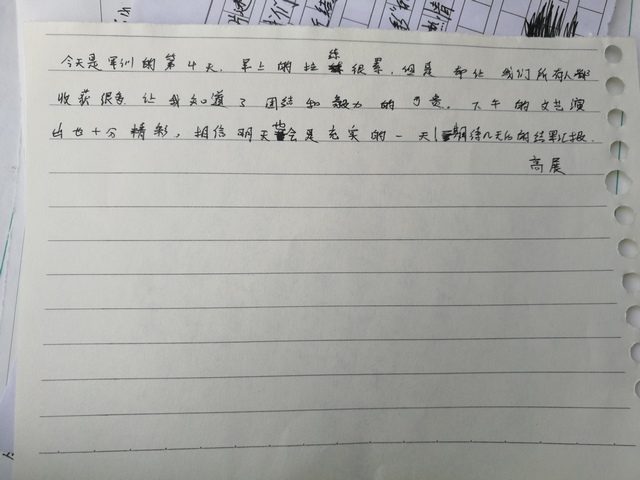 今天是军训的第4天,早上的拉练很累,但是却让我们所有人都
收获很多让我知道了团结和毅力的可贵。下午的文艺演
出也十分精彩,相信明天也会是充实的一天!期待几天后的结果汇报.
高展